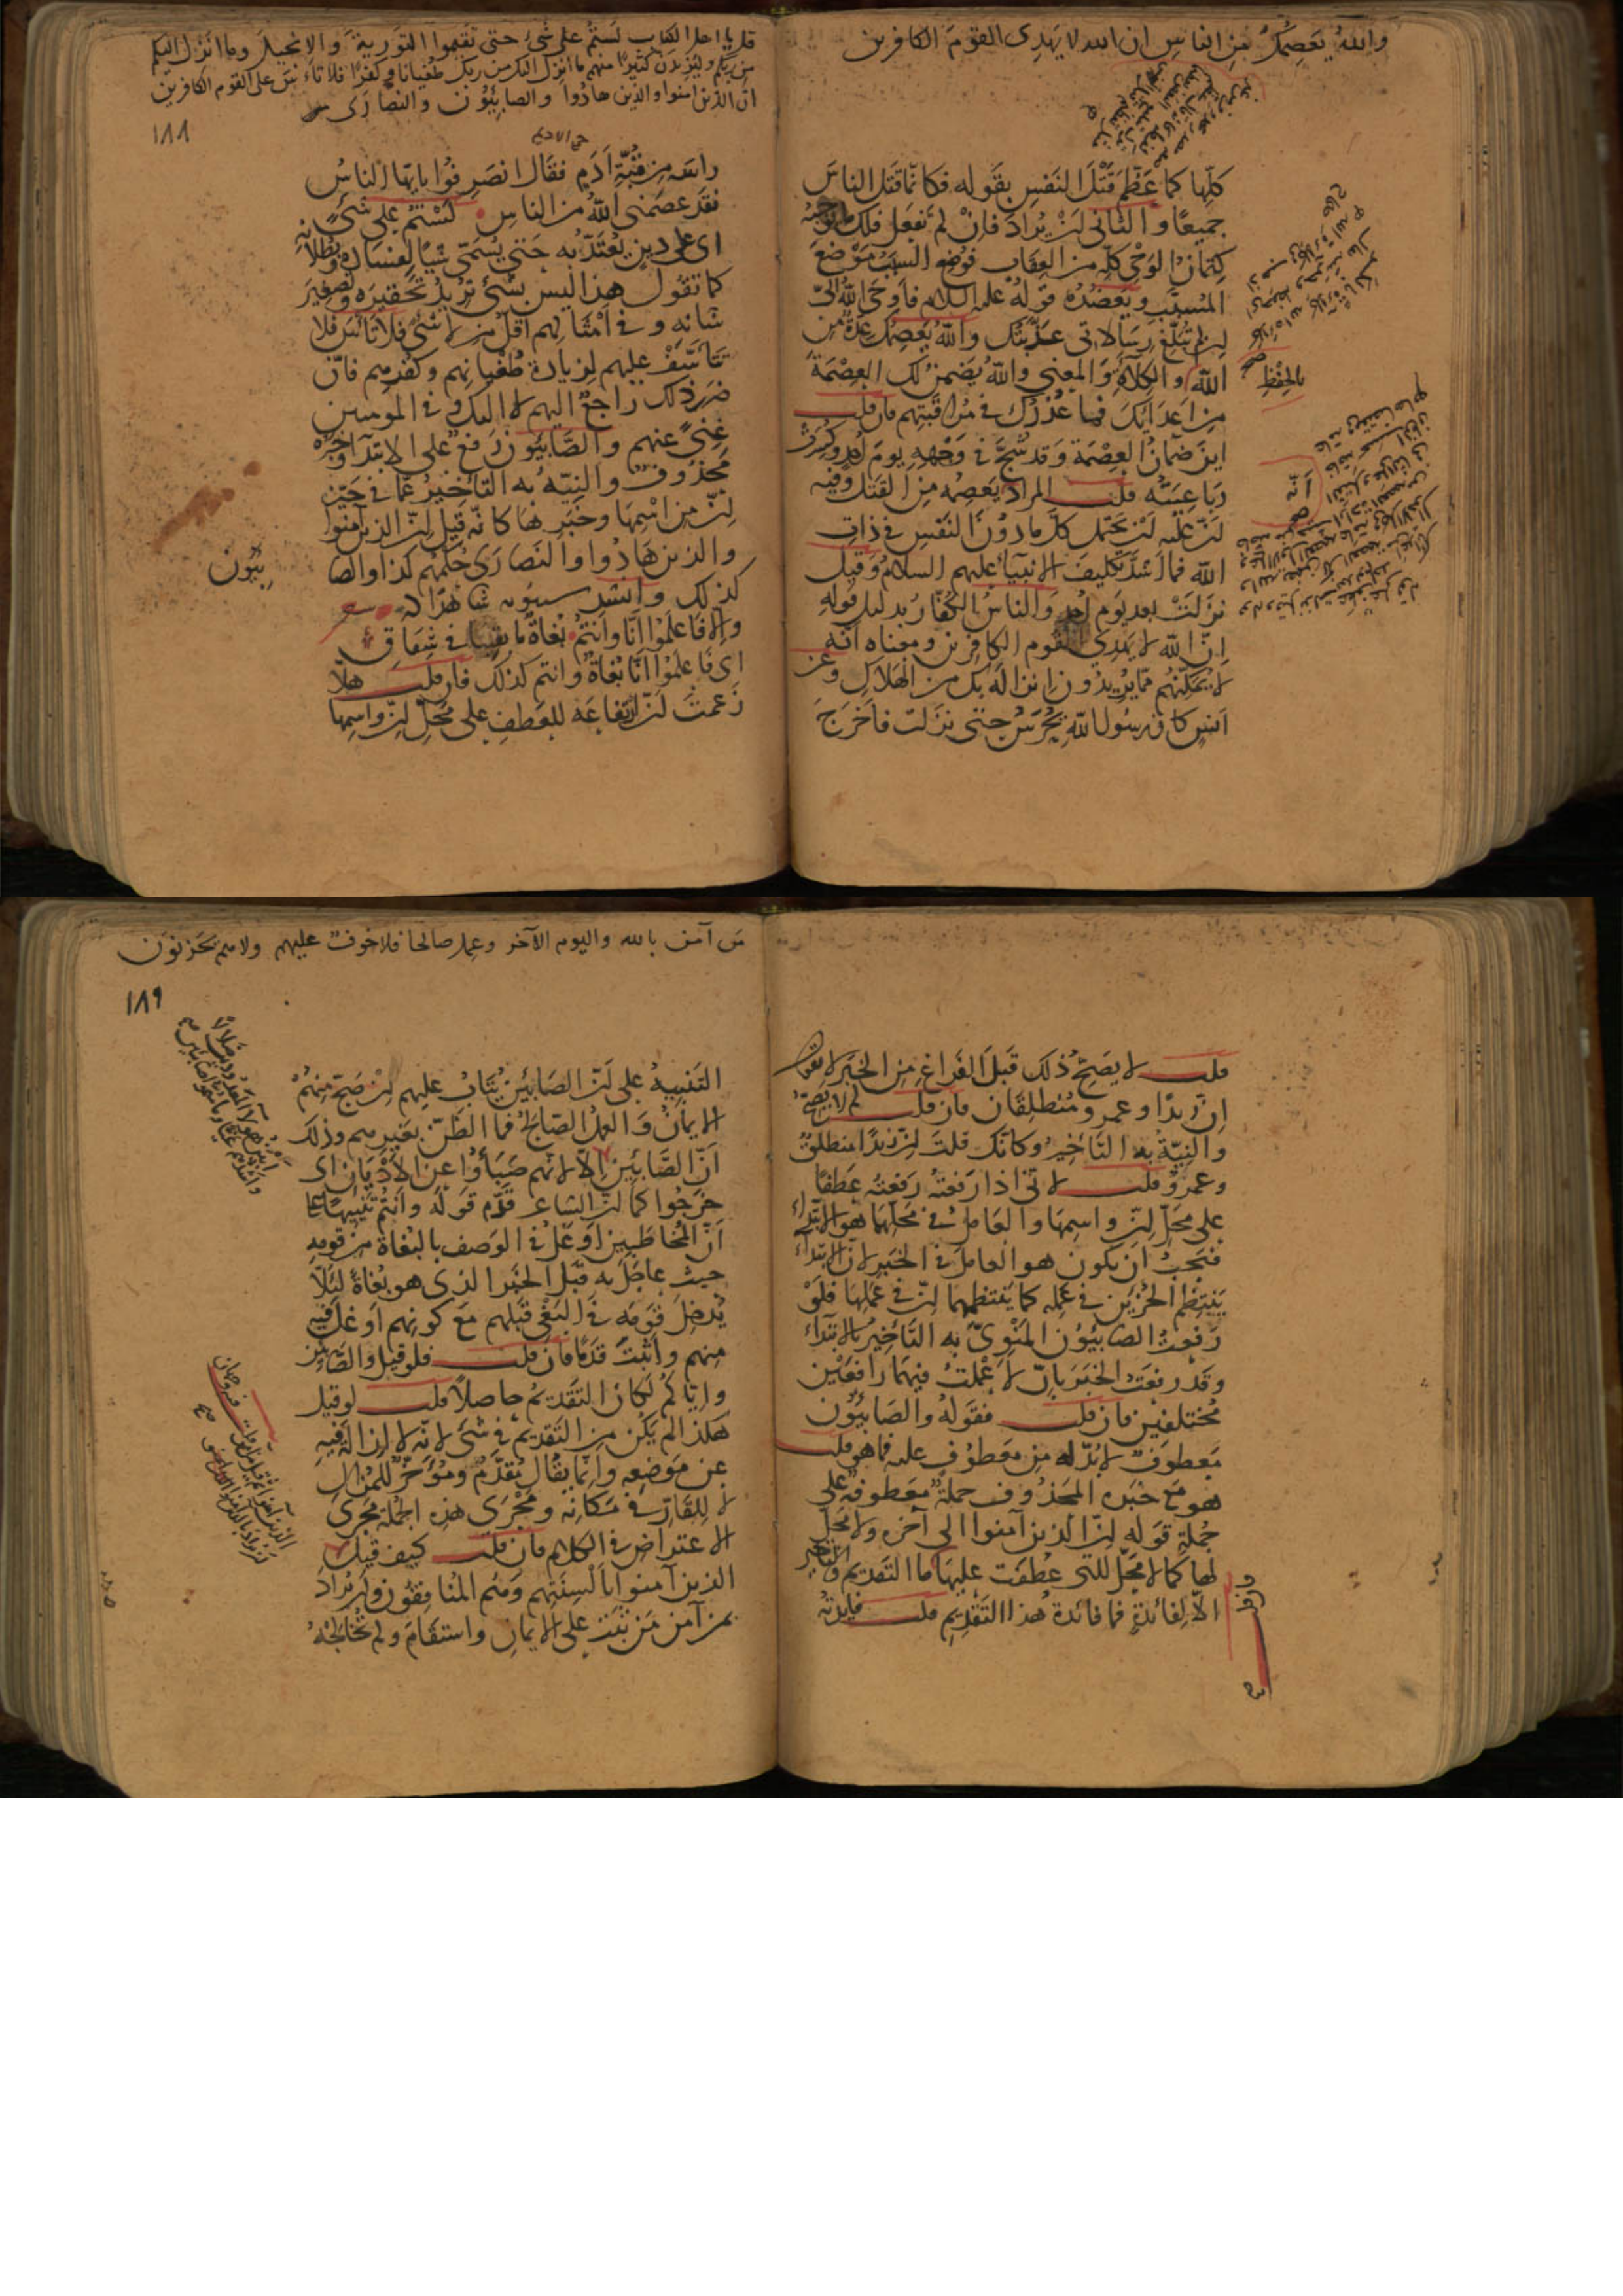 والله يعصمك من الناس ان الله لا يهدى القوم الكافرين
كلها كما عظم قتل النفس بقوله فكانما قتل الناس
جميعا والثانى ان يراد فان لم تفعل فلك ما يوجبه
كتمان الوحى كله من العقاب فوضع السبب موضع
المسبب ويعضده قوله عليه السلام فاوحى الله الىّ
ان لم تبلغ رسالاتى عذبتك والله يعصمك عدة من
الله والكلاءة والمعنى والله يضمن لك العصمة
بالحفظ
من اعدائك فما عذرك فى مراقبتهم فان قلت
اين ضمان العصمة وقد شج فى وجهه يوم احد وكسرت
رباعيته قلت المراد يعصمه من القتل وفيه
ان عليه ان يحتمل كل ما دون النفس فى ذات
الله فما اشد تكليف الانبياء عليهم السلام وقيل
نزلت بعد يوم احد والناس الكفار بدليل قوله
ان الله لا يهدى القوم الكافرين ومعناه انه
لا يمكنهم مما يريدون انزاله بك من الهلاك وعن
انس كان رسول الله يحرس حتى نزلت فاخرج
قل يا اهل الكتاب لستم على شئ حتى تقيموا التورية والانجيل وما انزل اليكم
من ربكم وليزيدن كثيرا منهم ما انزل اليك من ربك طغيانا وكفرا فلا تاس على القوم الكافرين
ان الذين امنوا والذين هادوا والصابئون والنصارى
١٨٨
راسه من قبة ادم فقال انصرفوا يا ايها الناس
فقد عصمنى الله من الناس لستم على شئ
اى على دين يعتد به حتى يسمى شيئا لفساده وبطلانه
كما تقول هذا ليس بشئ تريد تحقيره وتصغير
شانه وفى امثالهم اقل من لا شئ فلا تاس فلا
تتاسف عليهم لزيادة طغيانهم وكفرهم فان
ضرر ذلك راجع اليهم لا اليك وفى المومنين
غنى عنهم والصابئون رفع على الابتداء وخبره
محذوف والنية به التاخير عما فى حيز
ان من اسمها وخبرها كانه قيل ان الذين آمنوا
والذين هادوا والنصارى حكمهم كذا والصا
بئون
كذلك وانشد سيبويه شاهدا له
والا فاعلموا انا وانتم بغاة ما بقينا فى شقاق
اى فاعلموا انا بغاة وانتم كذلك فان قلت هلّا
زعمت ان ارتفاعه للعطف على محل ان واسمها
قلت لا يصح ذلك قبل الفراغ من الخبر لا تقول
ان زيدا وعمرو منطلقان فان قلت لم لا يصح
والنية به التاخير وكانك قلت ان زيدا منطلق
وعمرو قلت لانى اذا رفعته رفعته عطفا
على محل ان واسمها والعامل فى محلها هو الابتداء
فيجب ان يكون هو العامل فى الخبر لان الابتداء
ينتظم الجزئين فى عمله كما ينتظمهما ان فى عملها فلو
رفعت الصابئون المنوى به التاخير بالابتداء
وقد رفعت الخبر بان لاعملت فيهما رافعين
مختلفين فان قلت فقوله والصابئون
معطوف لا بد له من معطوف عليه فما هو قلت
هو مع خبره المحذوف جملة معطوفة على
جملة قوله ان الذين آمنوا الى آخره ولا محل
لها كما لا محل للتى عطفت عليها فان قلت ما التقديم والتاخير
الا لفائدة فما فائدة هذا التقديم قلت فايدته
من آمن بالله واليوم الآخر وعمل صالحا فلا خوف عليهم ولا هم يحزنون
١٨٩
التنبيه على ان الصابئين يتاب عليهم ان صح منهم
الايمان والعمل الصالح فما الظن بغيرهم وذلك
ان الصابئين الا لانهم صبأوا عن الاديان اى
خرجوا كما ان الشاعر قدم قوله وانتم تنبيها على
ان المخاطبين اوغل فى الوصف بالبغاة من قومه
حيث عاجل به قبل الخبر الذى هو بغاة لئلا
يدخل قومه فى البغى قبلهم مع كونهم اوغل فيه
منهم واثبت قدما فان قلت فلو قيل والصابئين
واياكم لكان التقديم حاصلا قلت لو قيل
هكذا لم يكن من التقديم فى شئ لانه لا ازالة فيه
عن موضعه وانما يقال مقدم ومؤخر للمزال
لا للقار فى مكانه ومجرى هذه الجملة مجرى
الاعتراض فى الكلام فان قلت كيف قيل
الذين آمنوا بالسنتهم وهم المنافقون وان يراد
بمن آمن من ثبت على الايمان واستقام ولم يخالجه